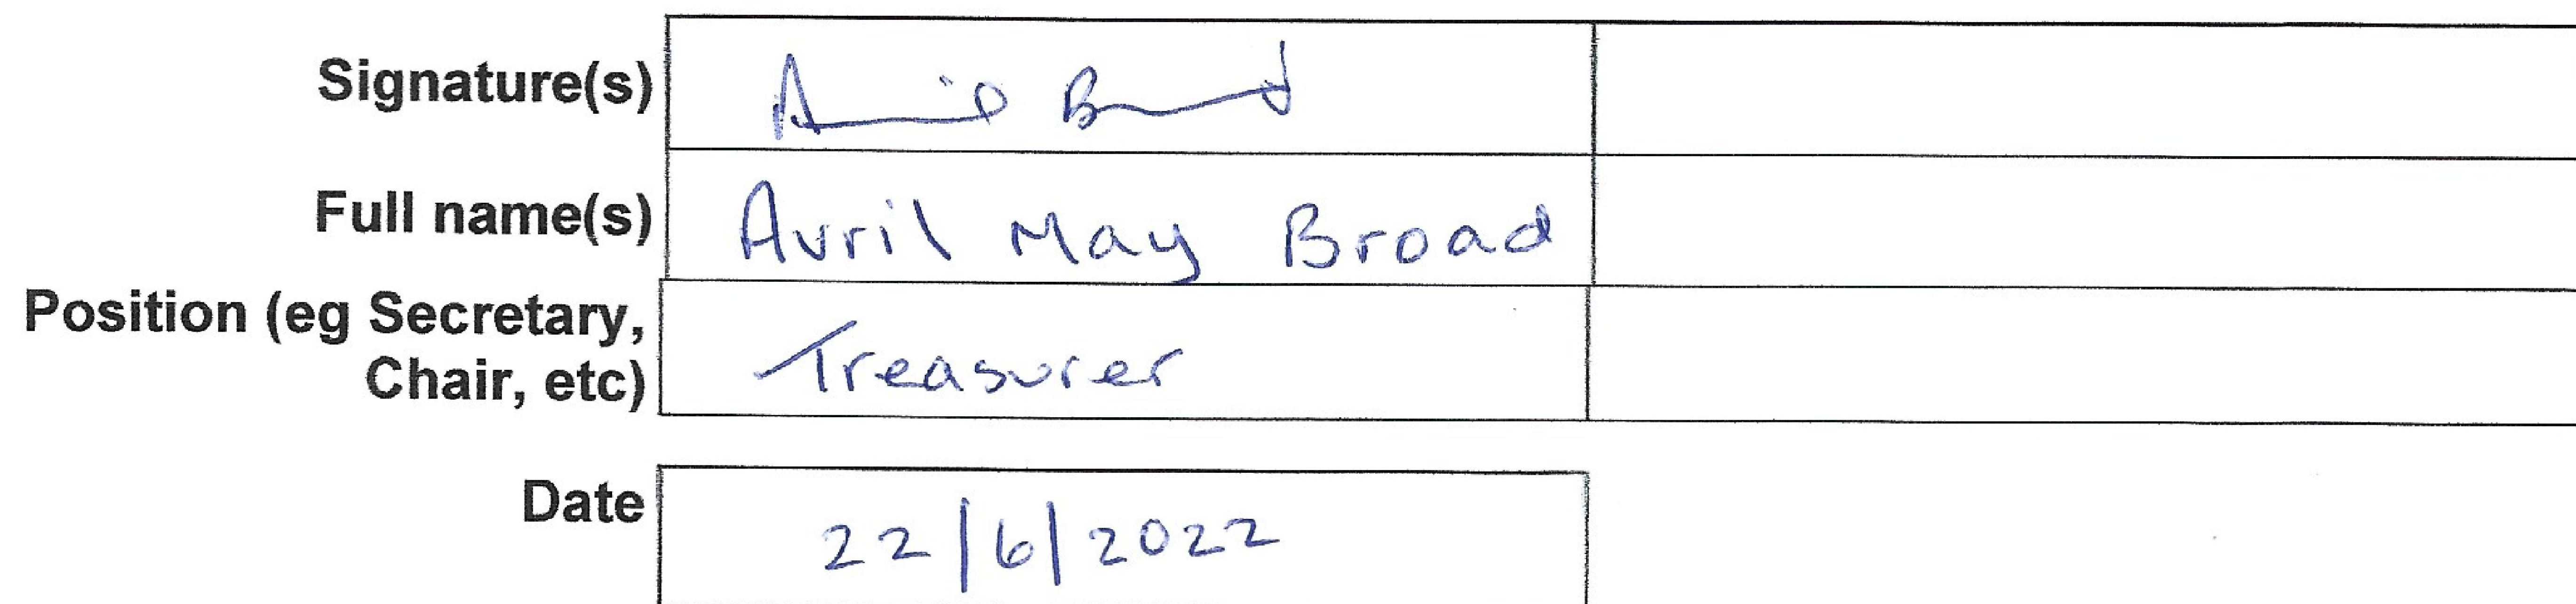 Signature(s) Avril Broad
Full name(s) Avril May Broad
Position (eg Secretary,
Chair, etc) Treasurer
Date 22/6/2022